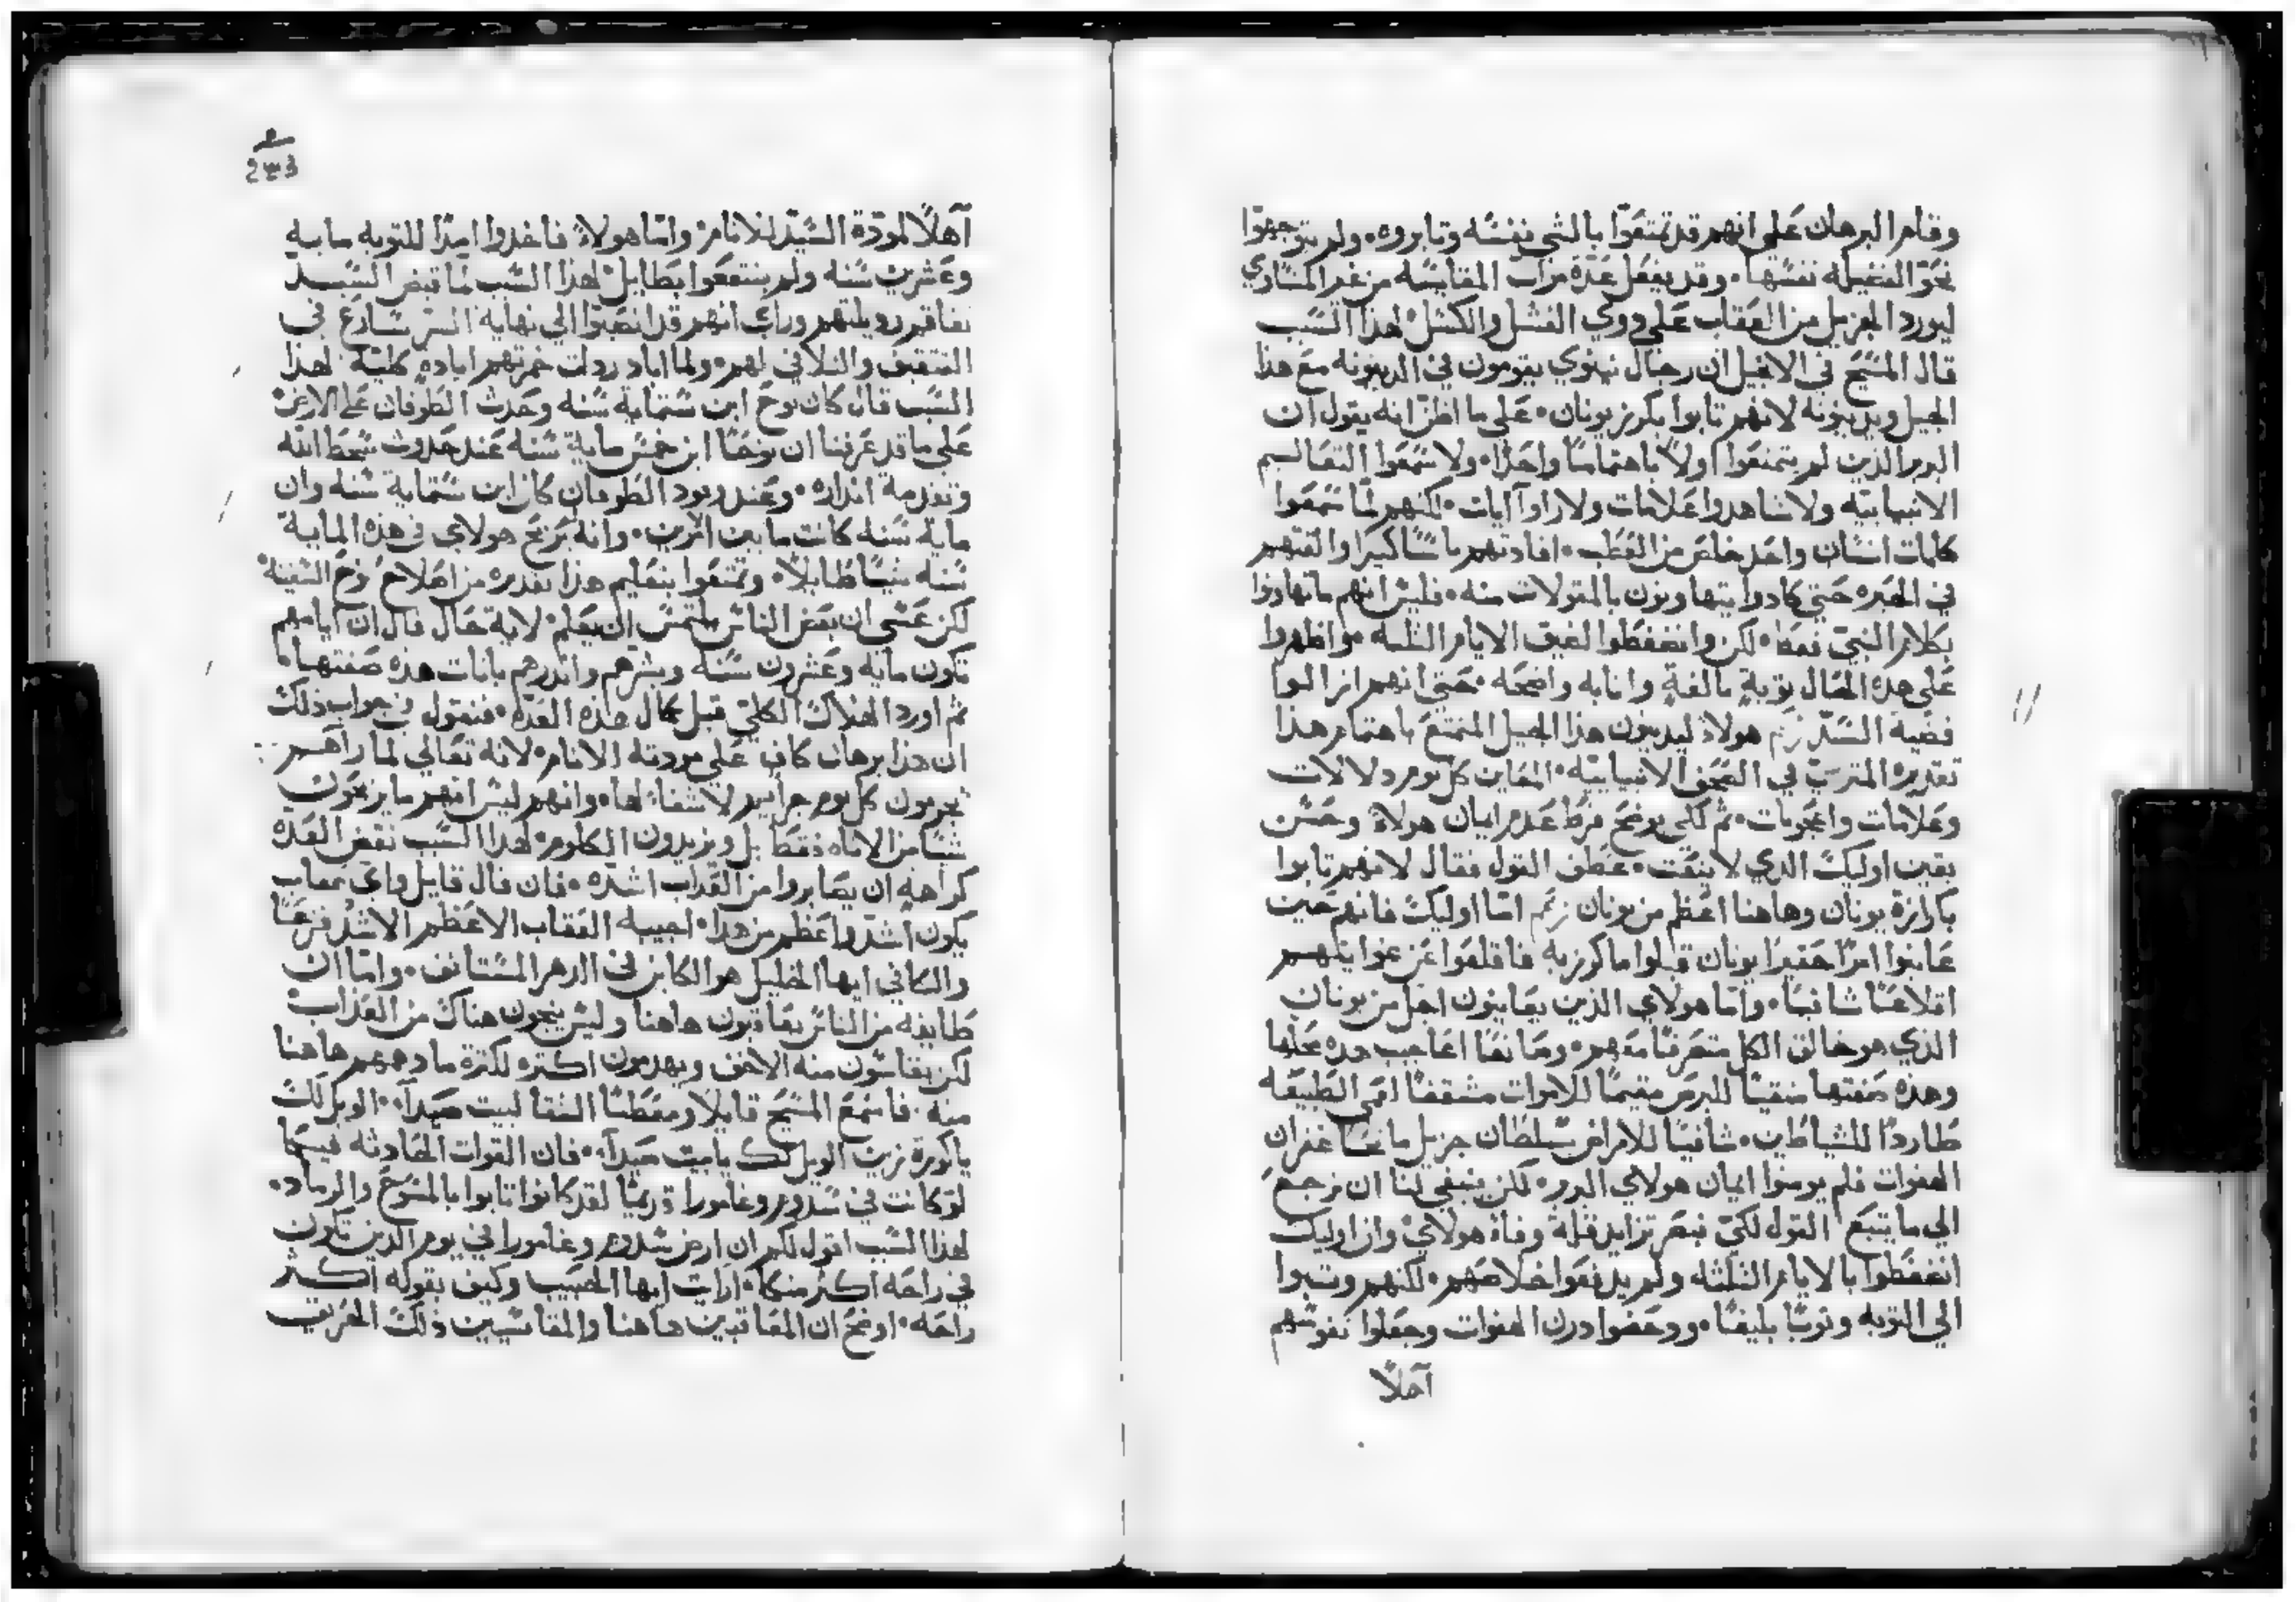 وقام البرهان على انهم قد تمتعوا بالشي نفسه وتابروه. ولم يتوجهوا
نحو الفضيله نفسها. وقد يفعل عدة مرات المقايسه من غير المساوي
ليورد الجزيل من العقاب على دوي الفشل والكسل لهذا السبب
قال المسيح في الانجيل ان رجال نينوي يقومون في الدينونه مع هذا
الجيل ويدينونه لانهم تابوا بكرز يونان. على ما اظن انه يقول ان
البرر الذين لم يتمتعوا اولا باهتماما واحدا. ولا سمعوا التعاليم
الانبيابيه ولا شاهدوا علامات ولا راوا ايات. لكنهم لما سمعوا
كلمات انسان واحد خلص من العطب. افادتهم ياسا كبيرا والقتهم
في الحيره حتى كادوا يتهاونون بالمقولات منه. فليس انهم ما تهاونوا
بكلام النبي فقط. لكن وانضغطوا لضيق الايام الثلثه واظهروا
على هذه الحال توبة بالغة وانابه واضحه حتى انهم ازالوا
قضية السيد زعم هولاء ليدينون هذا الجيل المتمتع باهتمام هذا
تقديره المتربي في الصحف الانبيابيه. المعاين كل يوم دلالات
وعلامات واعجوبات. ثم لكي يوضح فرط عدم ايمان هولاء وحسن
يقين اوليك الدي لا ينعت. عطف القول فقال لانهم تابوا
بكارازة يونان وهاهنا اعظم من يونان زعم اما اوليك فانهم حين
عاينوا امرا حقيرا يونان قبلوا ما كرز به فاقلعوا عن غوايتهم
اقلاعا شافيا. واما هولاي الذين يعاينون اجل من يونان
الذي هو خالق الكل متصرفا معهم. وصانعا اعاجيب هذه محلها
وهذه صفتها منقيا للبرص مقيما للاموات مشقفا امي الطبيعه
طاردا للشياطين. شافيا للامراض بسلطان جزيل مانحا غفران
الهفوات فلم يومنوا ايمان هولاي البرر. لكن ينبغي لنا ان نرجع
الى ما يتبع القول لكي نبصر تزايد قلة وفاء هولاي وان اوليك
انضغطوا بالايام الثلثه ولم يدفعوا خلاصهم. لكنهم وتبوا
الى التوبه وتوبا بليغا. ودحضوا درن الهفوات وجعلوا نفوسهم
آهلا
233
آهلا لمودة السيد للانام. واما هولاء فاخدوا امدا للتوبه مايه
وعشرين سنه ولم ينتفعوا بطايل لهذا السبب لما قبض السيد
تفاقم رديلتهم وراي انهم قد انصبوا الي نهاية الشر سارع في
التثقيف والتلافي لهم. ولما اباد ردلت خمرتهم اباده كليه لهذا
السبب قال كان نوح ابن ستمايه سنه وحدث الطوفان على الارض
على ما قد عرفنا ان نوحا ابن خمس مايه سنه عند حدوث سخط الله
وتقدمة انداره. وعند ورود الطوفان كان ابن ستمايه سنه وان
مايه سنه كانت ما بين الامرين. وانه يربح هولاي في هذه المايه
سنه شيا طايلا. وتمتعوا بتعليم هذا تقديره من اصلاح نوح السفينه
لكن عسى ان بعض الناس يلتمس ان يعلم لاية حال قال ان ايامهم
تكون مايه وعشرون سنه وبشرهم واندرهم باناة هذه صفتها
ثم اورد الهلاك الكلي قبل كمال هذه العده. فنقول في جواب ذلك
ان هذا برهان كاف على مودته الانام لانه تعالي لما راهم
يجرمون كل يوم جرايم لا شفا لها. وانهم ليس انهم ما يربحون
شيا من الاناه فقط بل ويزيدون الكلوم. لهدا السبب نقض العده
كراهة ان يصابروا من العداب اشده. فان قال قايل واي عقاب
يكون اشد واعظم من هدا. اجيبه العقاب الاعظم الاشد فزعا
والكافي ايها الخليل هو الكاين في الدهر المستانف. واما ان
طايفه من الناس يعاقبون هاهنا وليس ينجون هناك من العداب
لكن يقاسون منه الاخف ويهدمون اكثره لكثرة ما دهمهم هاهنا
منه. فاسمع المسيح قايلا ومعطيا الشقا لبيت صيدا. الويل لك
ياكورة زين الويل لك يابيت صيدا. فان القوات الحادثه فيكما
لو كانت في سدوم وغامورا قديما لقد كانوا تابوا بالمسوح والرماد.
لهذا السبب اقول لكم ان ارض سدوم وغامورا في يوم الدين تكون
في راحه اكثر منكما. ارايت ايها الحبيب وكيف بقوله اكثر
راحه. اوضح ان المعاقبين هاهنا والمقاسيين ذلك الحريق